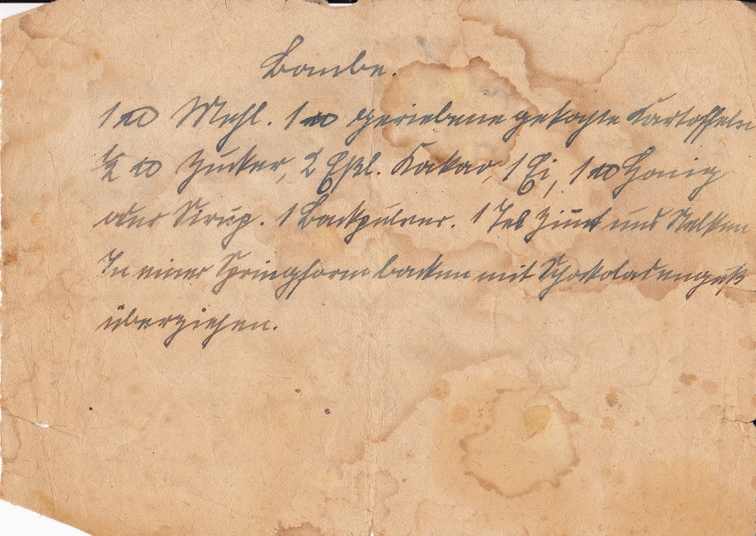 Bombe.
1 ℔ Mehl. 1 ℔ geriebene gekochte Kartoffeln
½ ℔ Zucker, 2 Eßl. Kakao, 1 Ei, 1 ℔ Honig
oder Sirup. 1 Backpulver. 1 Tel Zimt und Nelken
In einer Springform backen mit Schokoladenguß
überziehen.